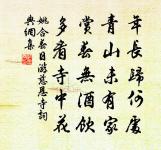 年長歸何處
青山未有家
賞春無酒飲
多看寺中花
姚合春日游慈恩寺詞
網集